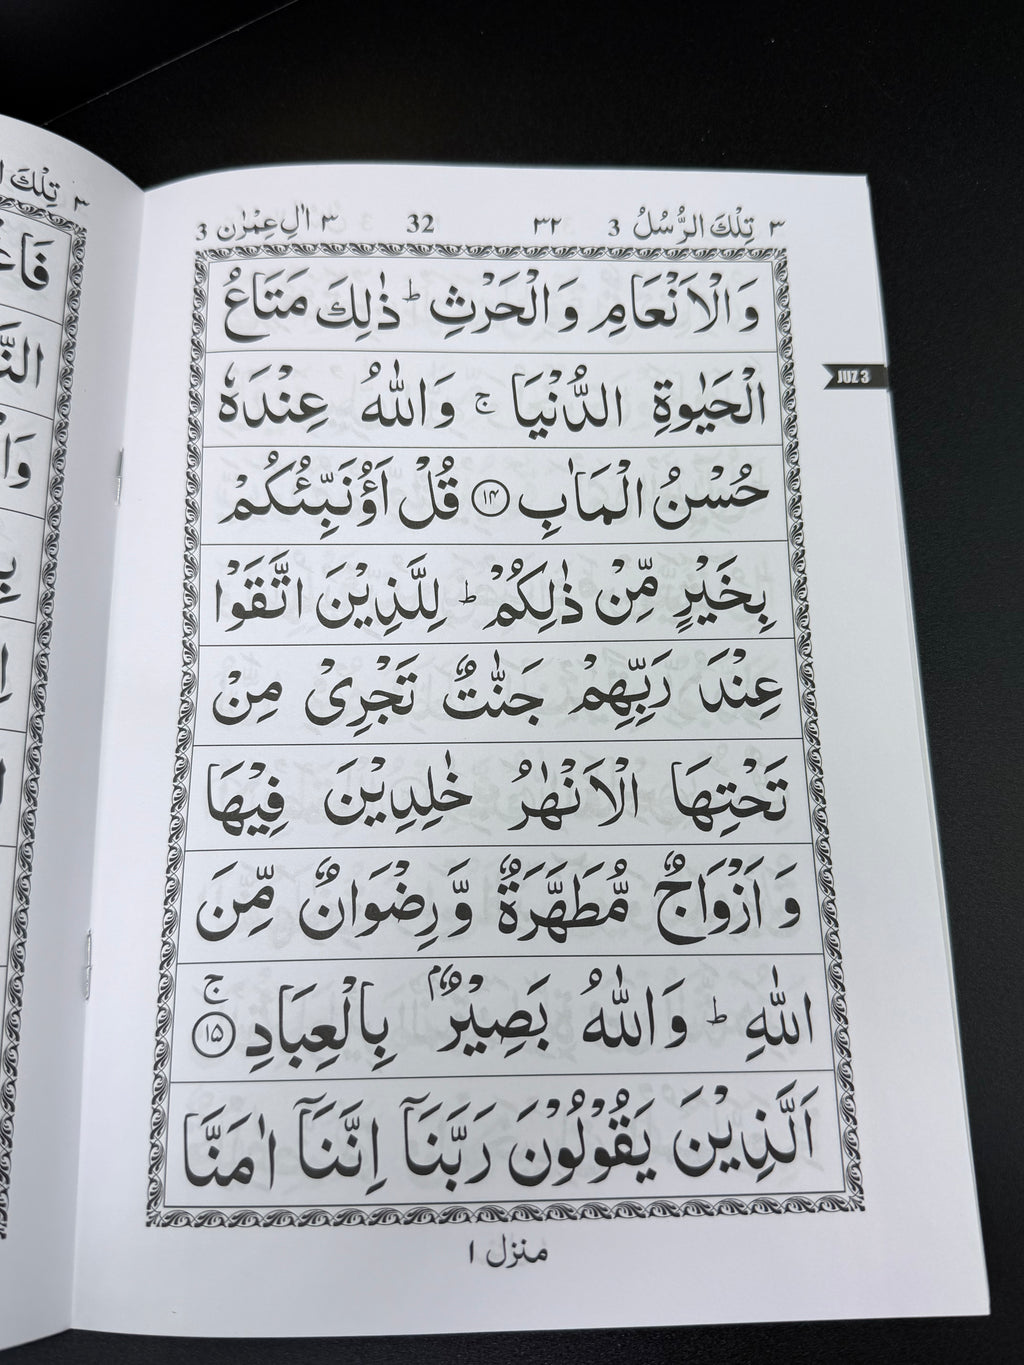 ٣ تِلْكَ الرُّسُلُ 3 ٣٢ 32 ٣ اٰلِ عِمْرٰن 3
وَالْاَنْعَامِ وَالْحَرْثِ ؕ ذٰلِكَ مَتَاعُ
الْحَيٰوةِ الدُّنْيَا ۚ وَاللّٰهُ عِنْدَهٗ
حُسْنُ الْمَاٰبِ ۝۱۴ قُلْ اَؤُنَبِّئُكُمْ
بِخَيْرٍ مِّنْ ذٰلِكُمْ ؕ لِلَّذِيْنَ اتَّقَوْا
عِنْدَ رَبِّهِمْ جَنّٰتٌ تَجْرِىْ مِنْ
تَحْتِهَا الْاَنْهٰرُ خٰلِدِيْنَ فِيْهَا
وَ اَزْوَاجٌ مُّطَهَّرَةٌ وَّرِضْوَانٌ مِّنَ
اللّٰهِ ؕ وَاللّٰهُ بَصِيْرٌۢ بِالْعِبَادِ ۝۱۵ ۚ
اَلَّذِيْنَ يَقُوْلُوْنَ رَبَّنَاۤ اِنَّنَاۤ اٰمَنَّا
منزل ١
JUZ 3
٣ تِلْكَ